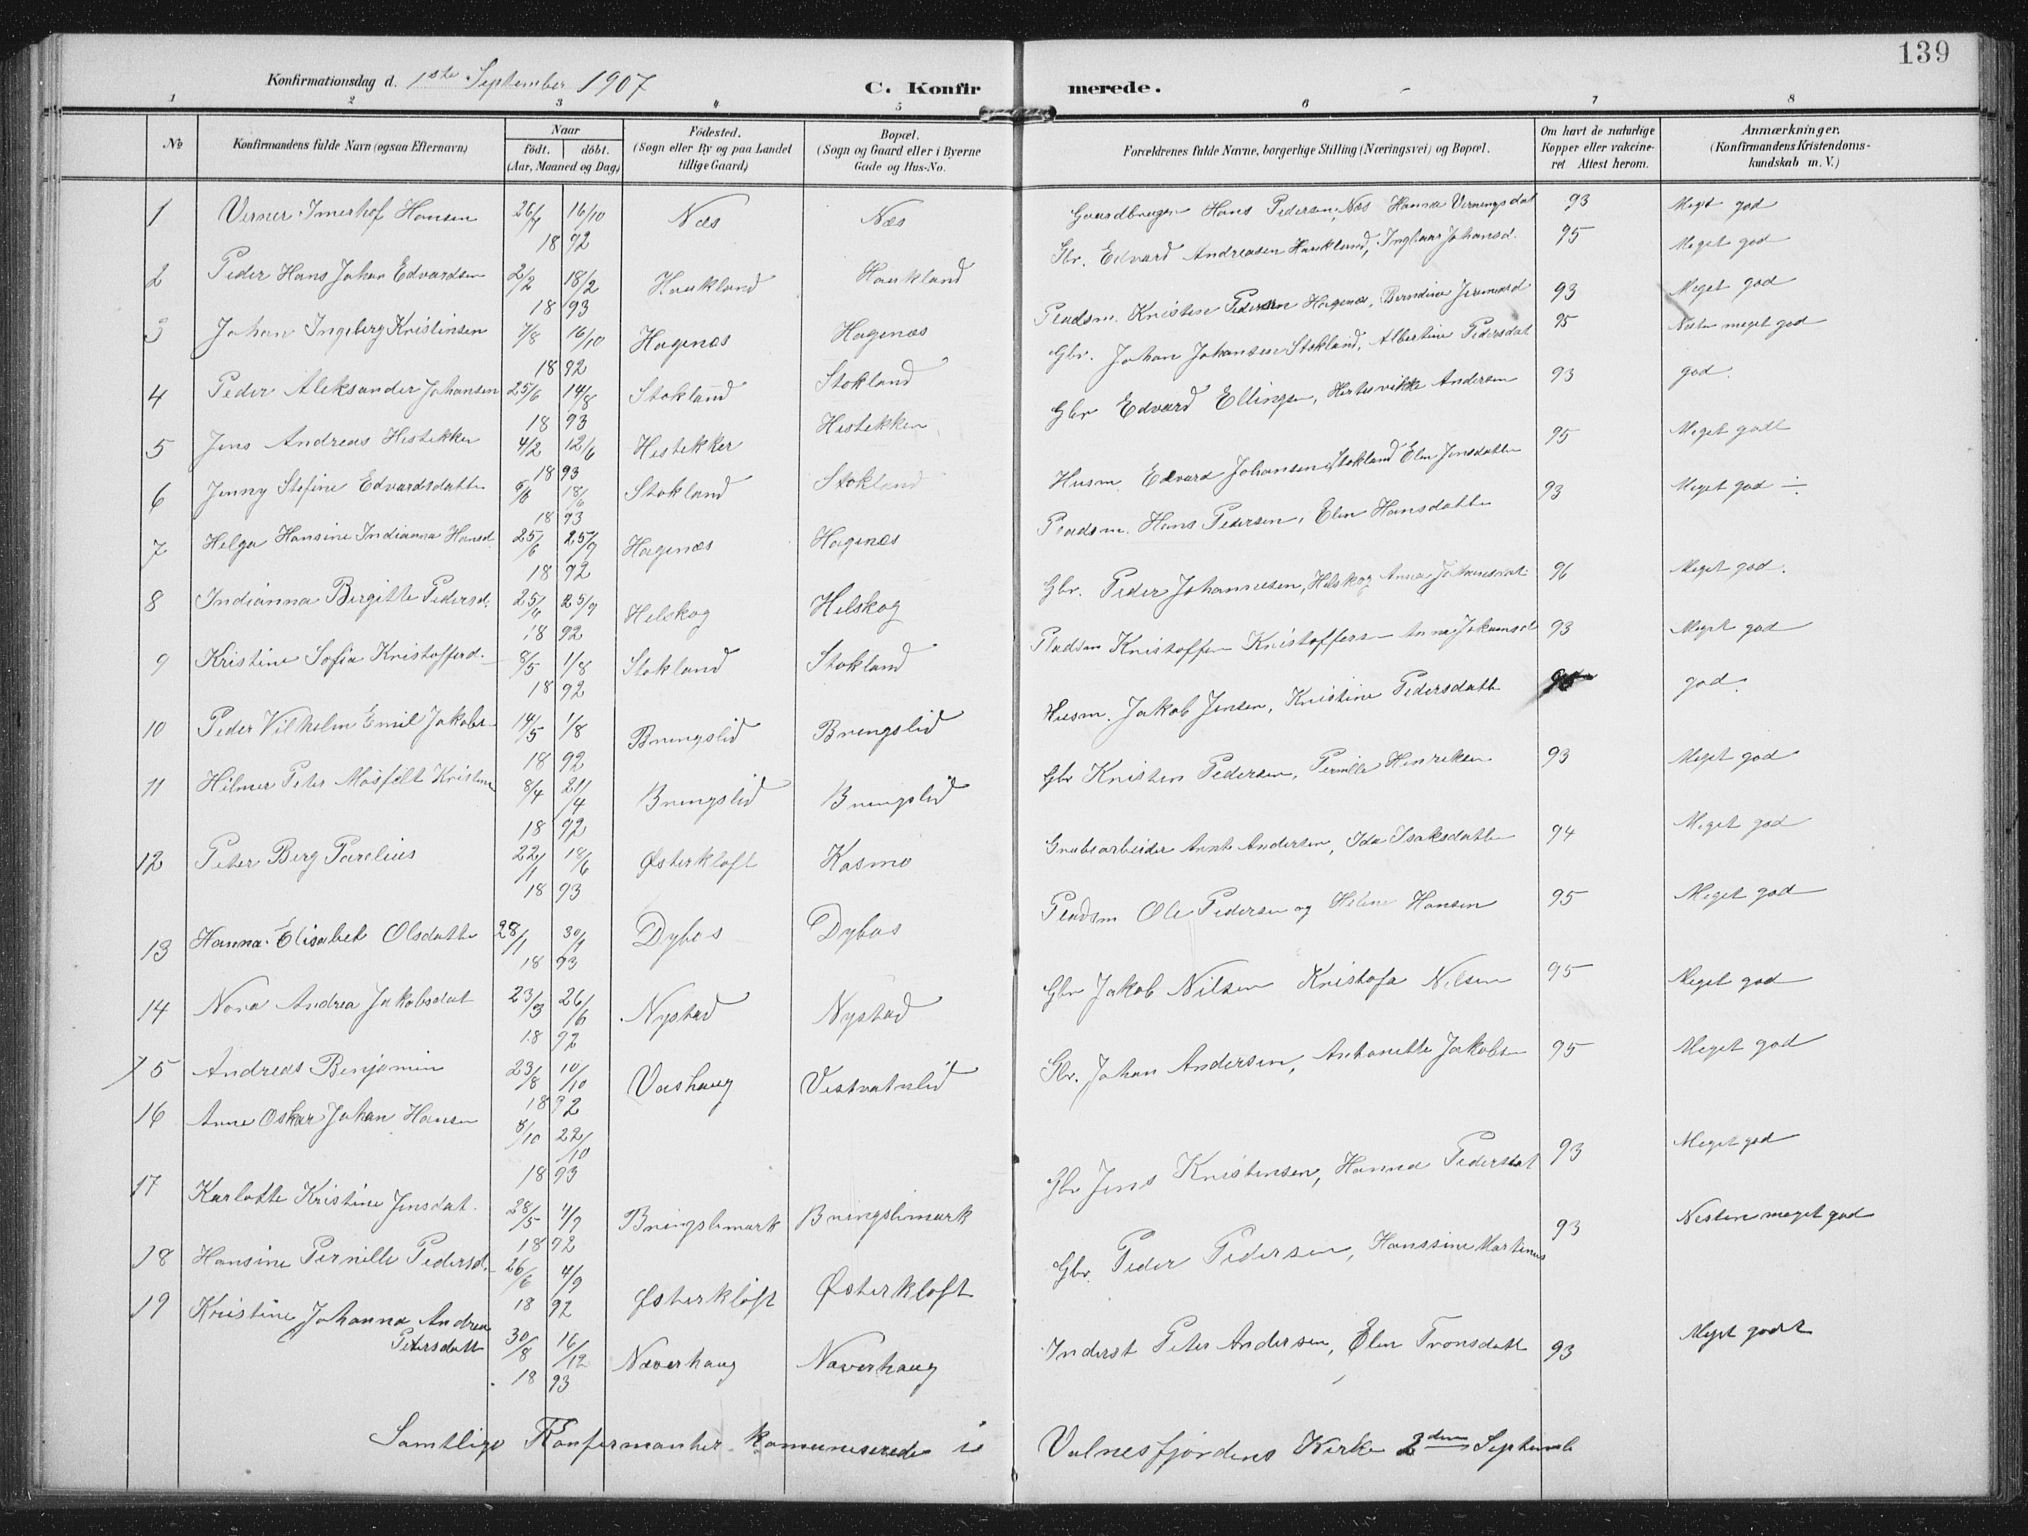 139
Konfirmationsdag d. 1ste September 1907 C. Konfirmerede.
1 2 3 4 5 6 7 8
No Konfirmandens fulde Navn (ogsaa Efternavn) Naar födt. döbt. (Aar, Maaned og Dag) Födested. (Sogn eller By og paa Landet tillige Gaard) Bopæl. (Sogn og Gaard eller i Byerne Gade og Hus-No. Forældrenes fulde Navne, borgerlige Stilling (Næringsvei) og Bopæl. Om havt de naturlige Kopper eller vakcineret Attest herom. Anmærkninger. (Konfirmandens Kristendomskundskab m. V.)
1 Verner Imerhof Hansen 26/9 16/10 1892 Næs Næs Gaardbruger Hans Pedersen, Næs Hanna Verningsdat 93 Meget god
2 Peder Hans Johan Edvardsen 2/2 18/2 1893 Haukland Haukland Gbr. Edvard Andreasen Haukland, Johansd. 95 Meget god
3 Johan Ingeberg Kristinsen 7/8 16/10 1892 Hagenæs Hagenæs Pladsm. Kristen Pedersen Hagenæs, Berndine 93 Meget god
4 Peder Aleksander Johansen 25/6 14/8 1893 Stokland Stokland Gbr. Johan Johansen Stokland, Albertine Pedersdat 95 Nesten meget god
5 Jens Andreas Histekker 4/2 12/6 1893 Histekker Histekken Gbr Edvard Ellingsen, Andersen 93 god.
6 Jenny Stefine Edvardsdatte 18/6 1893 Stokland Stokland Husm. Edvard Johansen Stokland Elen Jensdatte 95 Meget godt
7 Helga Hansine Indianna Hansd. 25/6 25/9 1892 Hagenæs Hagenæs Pladsm. Hans Pedersen, Elen Hansdatte 93 Meget god ÷
8 Indianna Birgitte Pedersd. 25/9 1892 Helskog Helskog Gbr. Peder Johannesen, Helskog Anna 96 Meget god.
9 Kristine Sofia Kristofferd. 8/5 1/8 1892 Stokland Stokland Pladsm Kristoffer Kristoffers- Anna 93 Meget god
10 Peder Vilhelm Emil Jakobs- 14/5 1/8 1892 Bringslid Bringslid Husm. Jakob Jensen, Kristine Pedersdatte god.
11 Hilmer Peter Mosfelt Kristens 8/4 21/4 1892 Bringslid Bringslid Gbr Kristen Pedersen, Pernille Henriksen 93 Meget god
12 Peter Berg Parelius 22/1 18/6 1893 Østerkløft Kosmo Grubearbeider Arnt Andersen, Ida Isaksdatte 94 Meget god
13 Hanna Elisabet Olsdatte 28/1 30/9 1893 Dybos Dybos Pladsm Ole Pedersen og Helene Hansen 95 Meget god
14 Nora Andrea Jakobsdat 23/3 26/6 1892 Nystad Nystad Gbr Jakob Nilsen Kristofa Nilsen 95 Meget god
15 Andreas Benjamin 23/8 10/10 1892 Voshaug Vestvatnlid Gbr. Johan Andersen, Antonette Jakobs- 95 Meget god
16 Arne Oskar Johan Hansen 8/10 22/10 1893
17 Karlotte Kristine Jensdat. 28/5 4/9 1892 Bringslimark Bringslimark Gbr Jens Kristensen, Hanna Pedersdat 93 Meget god
18 Hansine Pernille Pedersd. 26/6 4/9 1892 Østerkløft Østerkløft Gbr. Peder Pedersen, Hanssine Martinus 93 Nesten meget god
19 Kristine Johanna Andrea Petersdatt 30/8 16/12 1893 Næverhaug Næverhaug Inderst Peter Andersen, Elen Tronsdatt 93 Meget godt
Samtlige Konfermanter komuniserede i Valnesfjordens Kirke 2den September